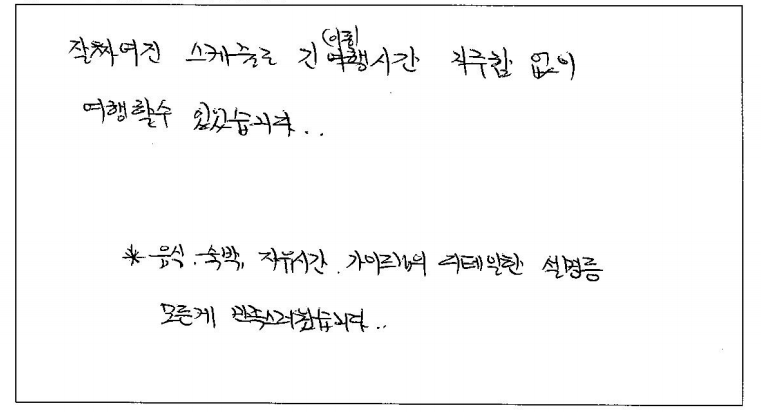 잘짜여진 스케줄로 긴 (이동) 여행시간 지루함 없이
여행할수 있었습니다..
* 음식. 숙박, 자유시간. 가이드님의 디테일한 설명등
모든게 만족스러웠습니다..